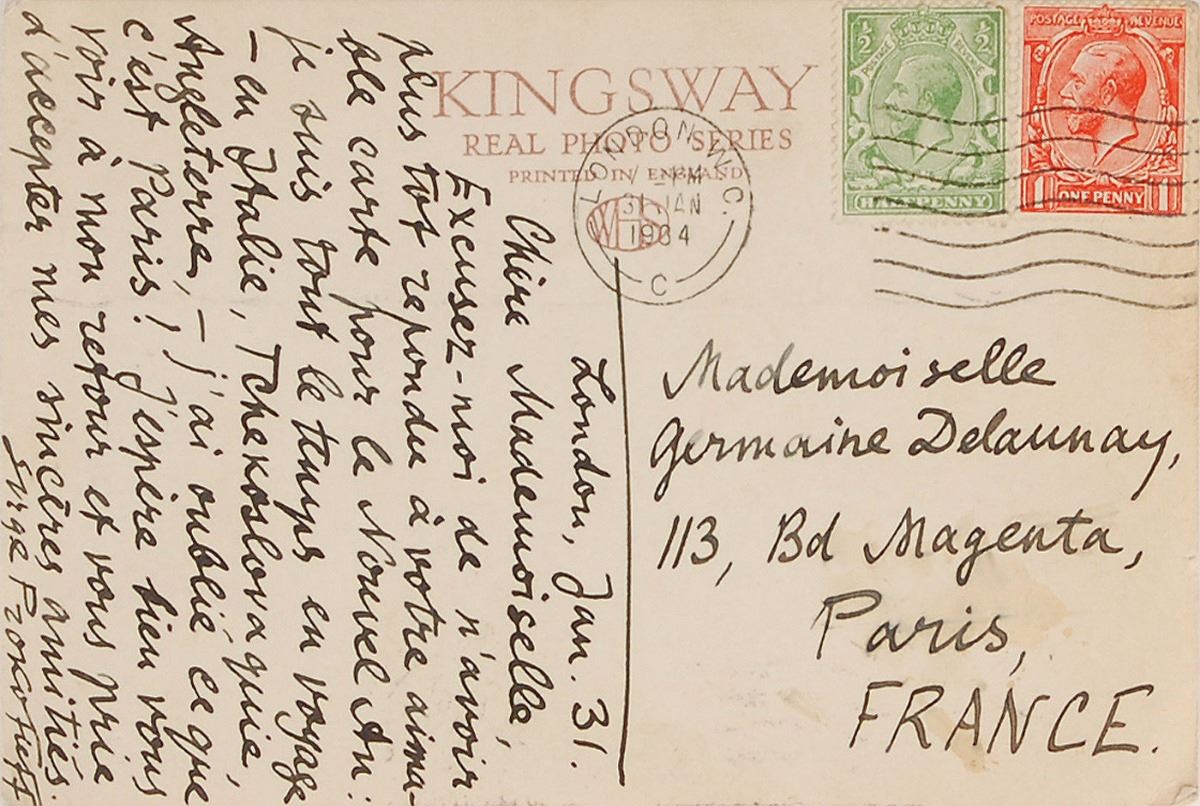 KINGSWAY
REAL PHOTO SERIES
PRINTED IN ENGLAND
WHS
LONDON. W.C.
31 JAN
1934
C
½ ½
POSTAGE REVENUE
HALFPENNY
POSTAGE REVENUE
1 ONE PENNY 1
London, Jan. 31.
Chère Mademoiselle,
Excusez-moi de n'avoir
plus tôt repondu à votre aima-
ble carte pour le Nouvel An:
je suis tout le temps en voyage
– en Italie, Tchekoslovaquie,
Angleterre, – j'ai oublié ce que
c'est Paris! J'espère bien vous
voir à mon retour et vous prie
d'accepter mes sincères amitiés.
Serge Prokofieff
Mademoiselle
Germaine Delaunay,
113, Bd Magenta,
Paris,
FRANCE.